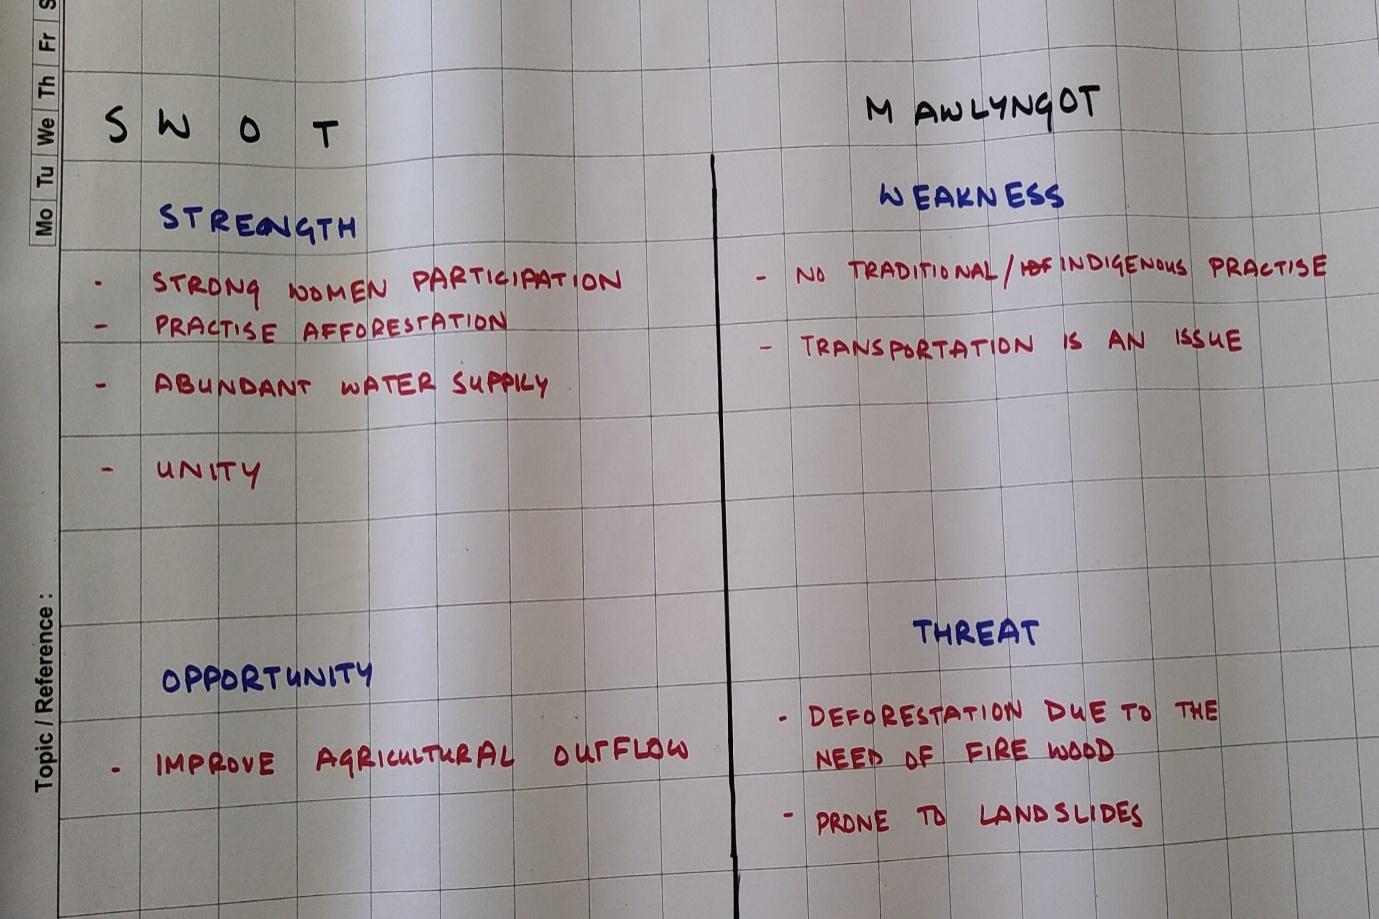 S W O T
MAWLYNGOT
STRENGTH
- STRONG WOMEN PARTICIPATION
- PRACTISE AFFORESTATION
- ABUNDANT WATER SUPPLY
- UNITY
WEAKNESS
- NO TRADITIONAL / INDIGENOUS PRACTISE
- TRANSPORTATION IS AN ISSUE
OPPORTUNITY
- IMPROVE AGRICULTURAL OUTFLOW
THREAT
- DEFORESTATION DUE TO THE
NEED OF FIRE WOOD
- PRONE TO LANDSLIDES
Mo Tu We Th Fr S
Topic / Reference :